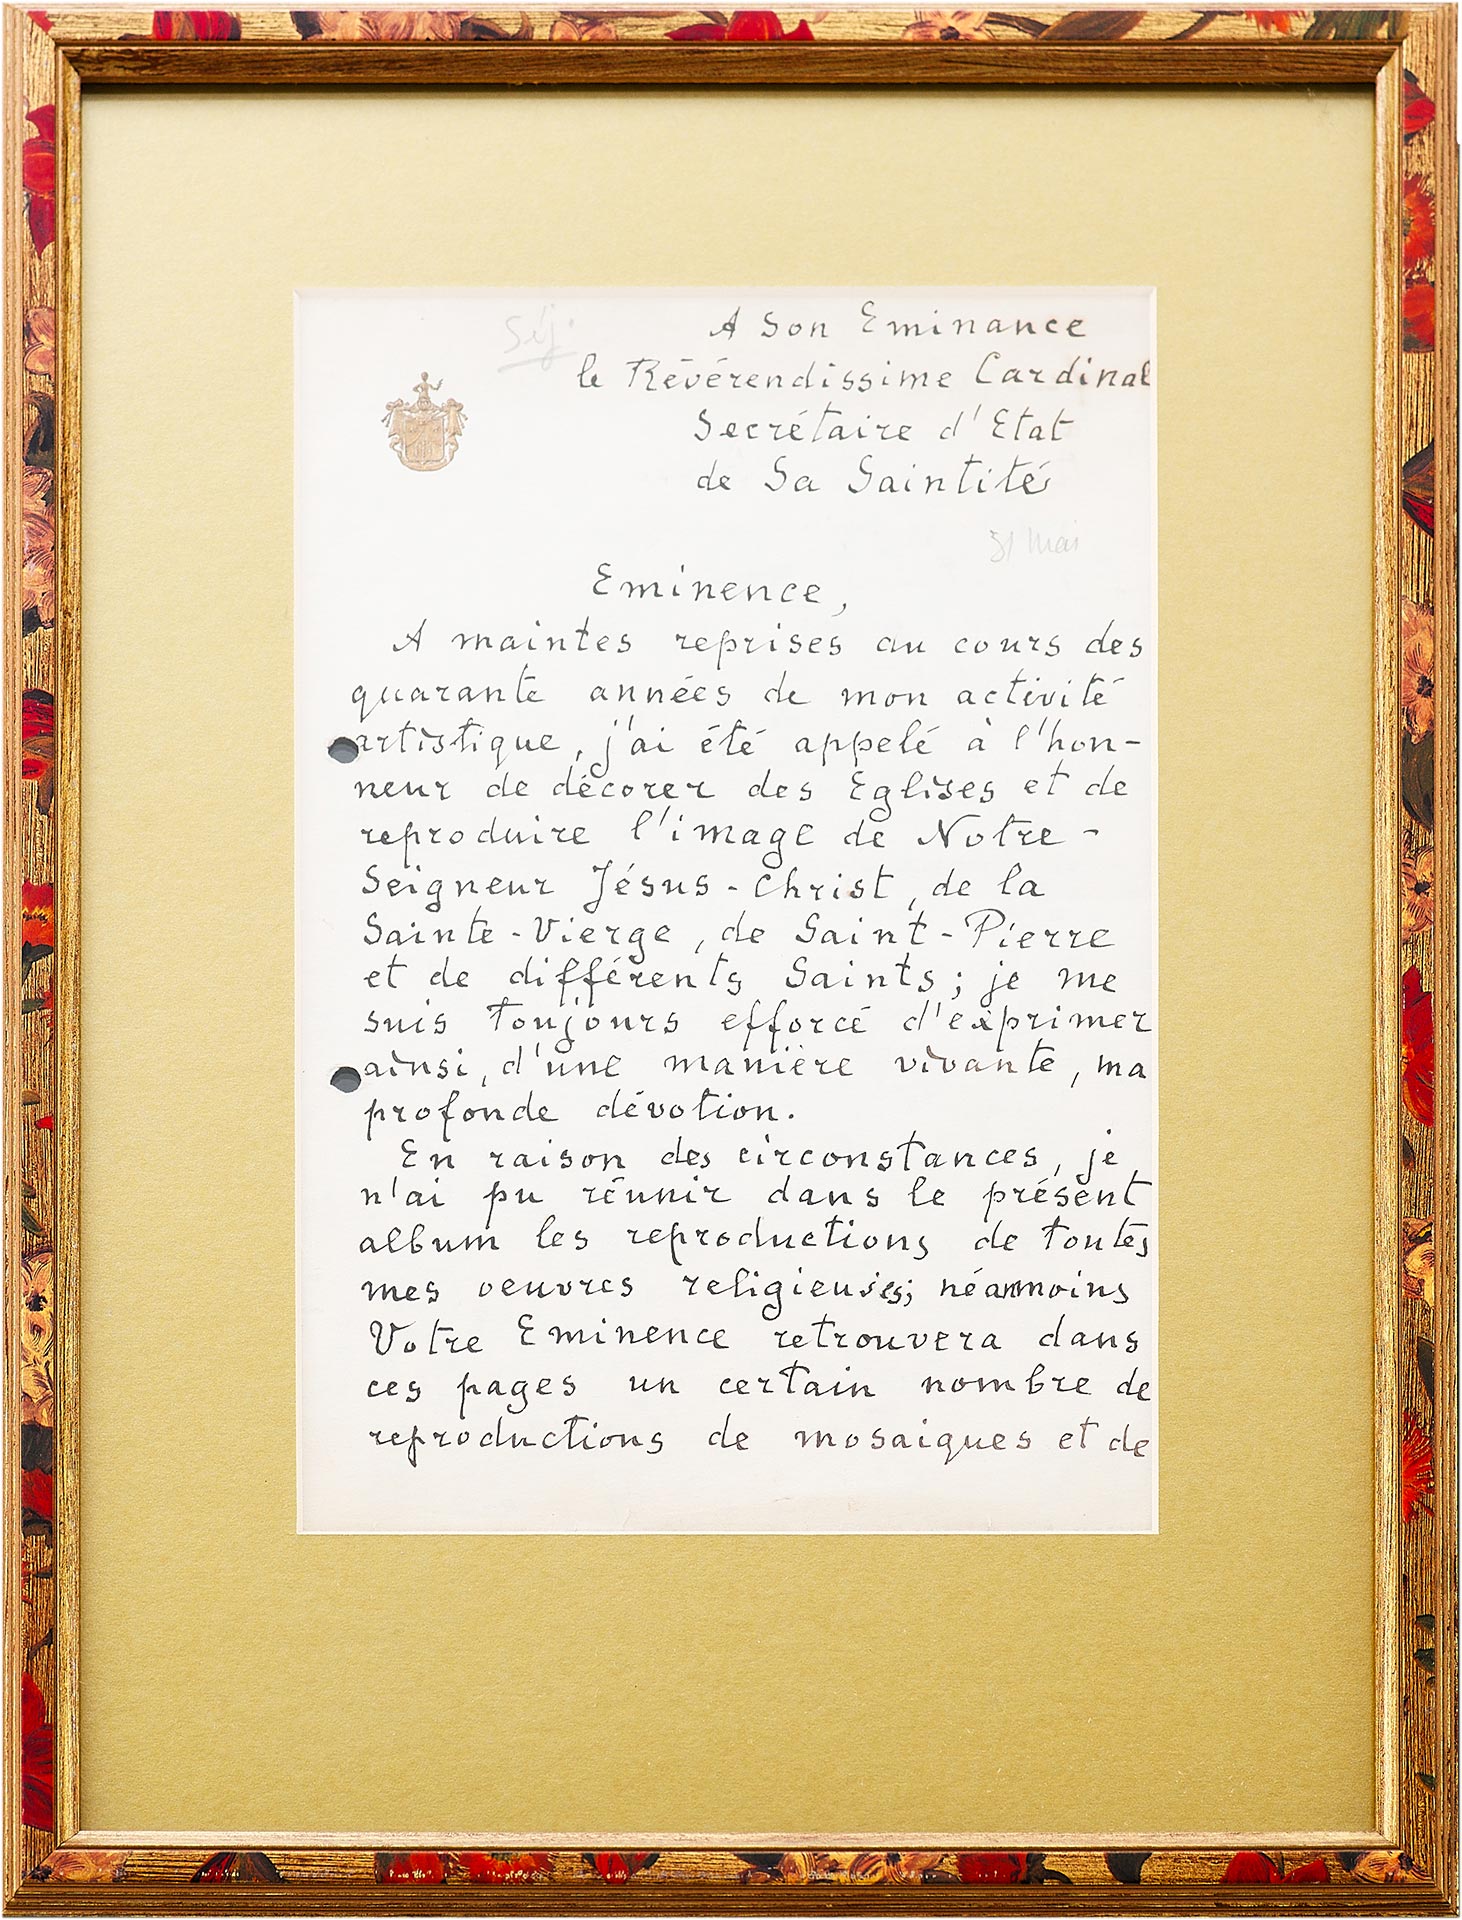 A Son Eminance
le Révérendissime Cardinal
Secrétaire d'Etat
de Sa Saintité
31 Mai
Eminence,
A maintes reprises au cours des
quarante années de mon activité
artistique, j'ai été appelé à l'hon-
neur de décorer des Eglises et de
reproduire l'image de Notre-
Seigneur Jésus-Christ, de la
Sainte-Vierge, de Saint-Pierre
et de différents Saints; je me
suis toujours efforcé d'exprimer
ainsi, d'une manière vivante, ma
profonde dévotion.
En raison des circonstances, je
n'ai pu réunir dans le présent
album les reproductions de toutes
mes oeuvres religieuses; néanmoins
Votre Eminence retrouvera dans
ces pages un certain nombre de
reproductions de mosaiques et de